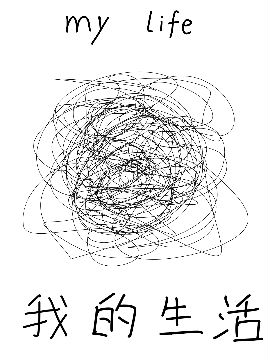 my life
我的生活